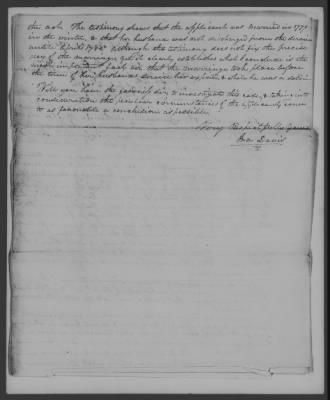 the act. The testimony shows that the applicant was married in 1779
in the winter, & that her husband was not discharged from the service
until April 1780. Although the testimony does not fix the precise
day of the marriage yet it clearly establishes what I conclude is the
most important fact viz that the marriage took place before
the term of her husbands service had expired & while he was a soldier
Will you have the goodness Sir, to investigate this case, & taking into
consideration the peculiar circumstances of the applicant come
to as favorable a conclusion as possible
Very Respectfully Yours
Davis